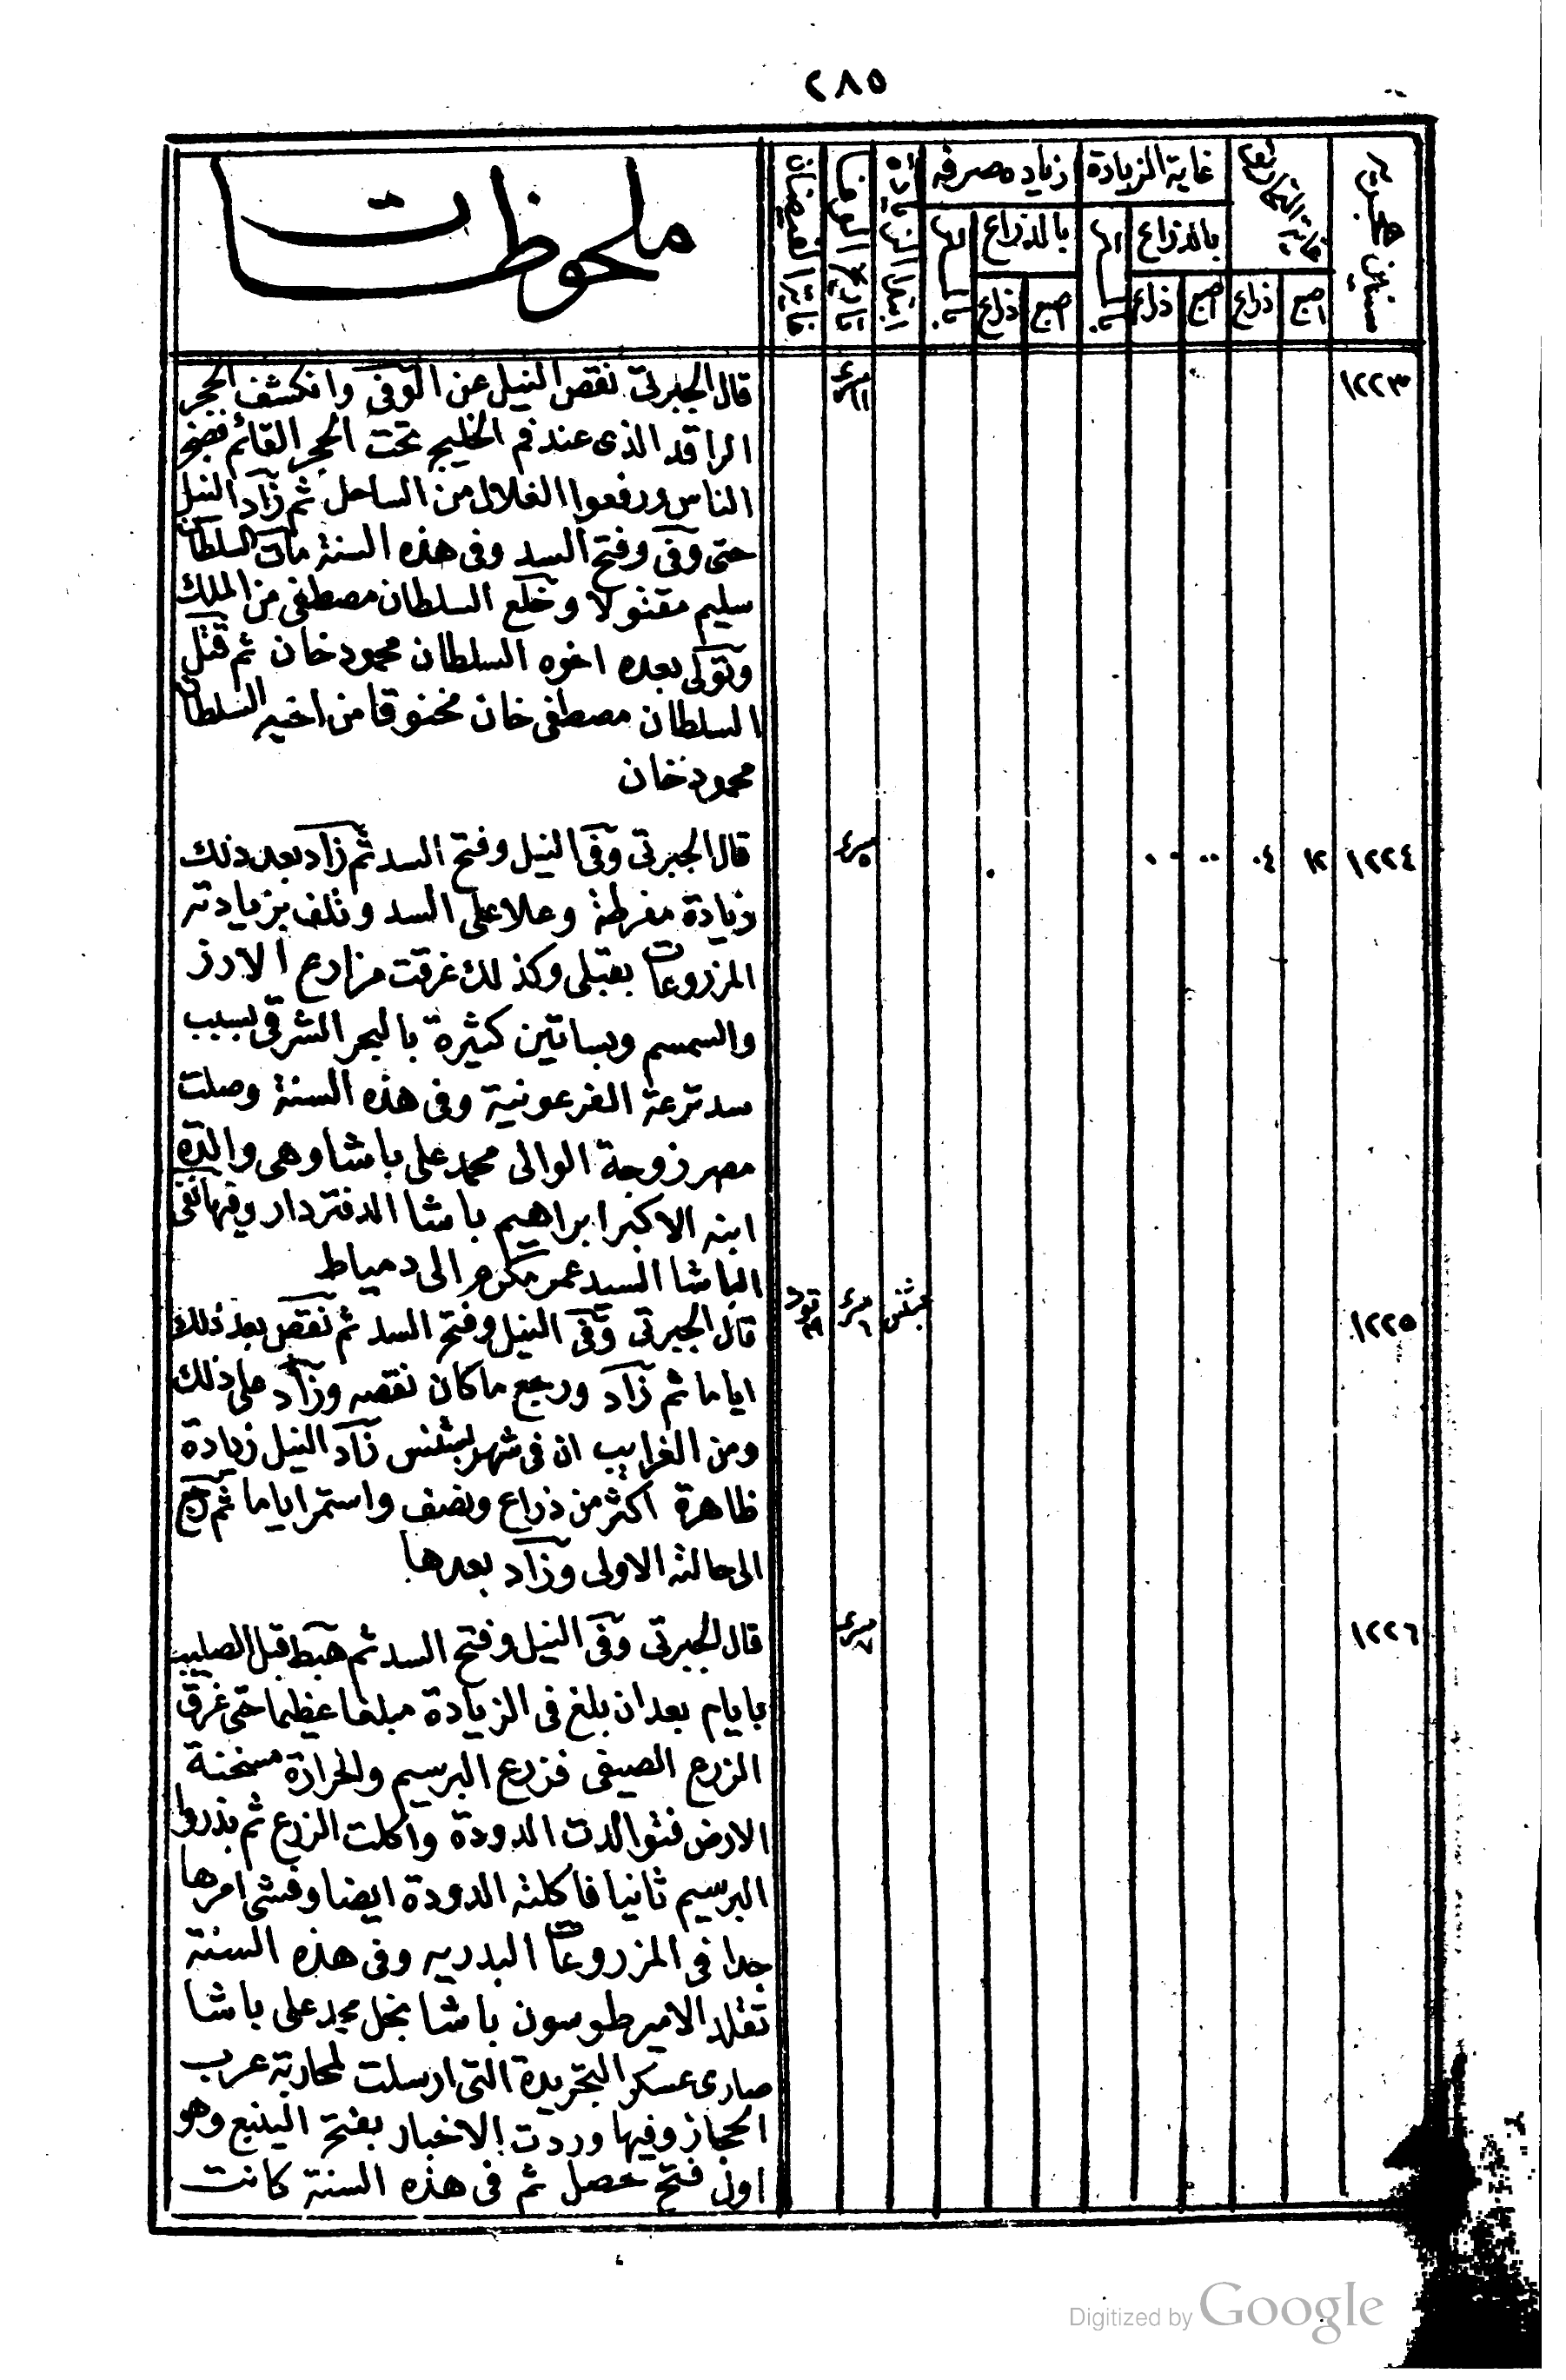 ٢٨٥
سنين هجرية
غاية التحاريق
اصبع
ذراع
غاية الزيادة
بالذراع
اصبع
ذراع
زياده مصرفه
بالذراع
اصبع
ذراع
ابتدا الزيادة
تاريخ الوفا
غاية الفيضان
ملحوظات
١٢٢٣
مسرى ١١
قال الجبرتى نقص النيل عن الوفى وانكشف الحجر
الراقد الذى عند فم الخليج تحت الحجر القائم فضج
الناس ورفعوا الغلال من الساحل ثم زاد النيل
حتى وفى وفتح السد وفى هذه السنة مات السلطان
سليم مقتولا وخلع السلطان مصطفى من الملك
وتولى بعده اخوه السلطان محمود خان ثم قتل
السلطان مصطفى خان مخنوقا من اخيه السلطان
محمود خان
١٢٢٤
١٢
٠٤
٠٠
٠٠
مسرى ٥
قال الجبرتى وفى النيل وفتح السد ثم زاد بعد ذلك
زيادة مفرطة وعلا على السد وتلف بزيادته
المزروعات بقبلى وكذلك غرقت مزارع الارز
والسمسم وبساتين كثيرة بالبحر الشرقى بسبب
سد ترعة الفرعونية وفى هذه السنة وصلت
مصر زوجة الوالى محمد على باشا وهى والدة
ابنه الاكبر ابراهيم باشا الدفتردار وفيها نفى
الباشا السيد عمر مكرم الى دمياط
١٢٢٥
بشنس
مسرى ٦
توت
قال الجبرتى وفى النيل وفتح السد ثم نقص بعد ذلك
اياما ثم زاد ورجع ماكان نقصه وزاد على ذلك
ومن الغرايب ان فى شهر بشنس زاد النيل زيادة
ظاهرة اكثر من ذراع ونصف واستمر اياما ثم رجع
الى حالته الاولى وزاد بعدها
١٢٢٦
مسرى ٧
قال الجبرتى وفى النيل وفتح السد ثم هبط قبل الصليب
بايام بعد ان بلغ فى الزيادة مبلغا عظيما حتى غرق
الزرع الصيفى فزرع البرسيم والحرارة مسخنة
الارض فتوالدت الدودة واكلت الزرع ثم بذروا
البرسيم ثانيا فاكلته الدودة ايضا وفشى امرها
جدا فى المزروعات البدريه وفى هذه السنة
تقلد الامير طوسون باشا نجل محمد على باشا
صارى عسكر التجريدة التى ارسلت لمحاربة عرب
الحجاز وفيها وردت الاخبار بفتح الينبع وهو
اول فتح حصل ثم فى هذه السنة كانت
Digitized by Google